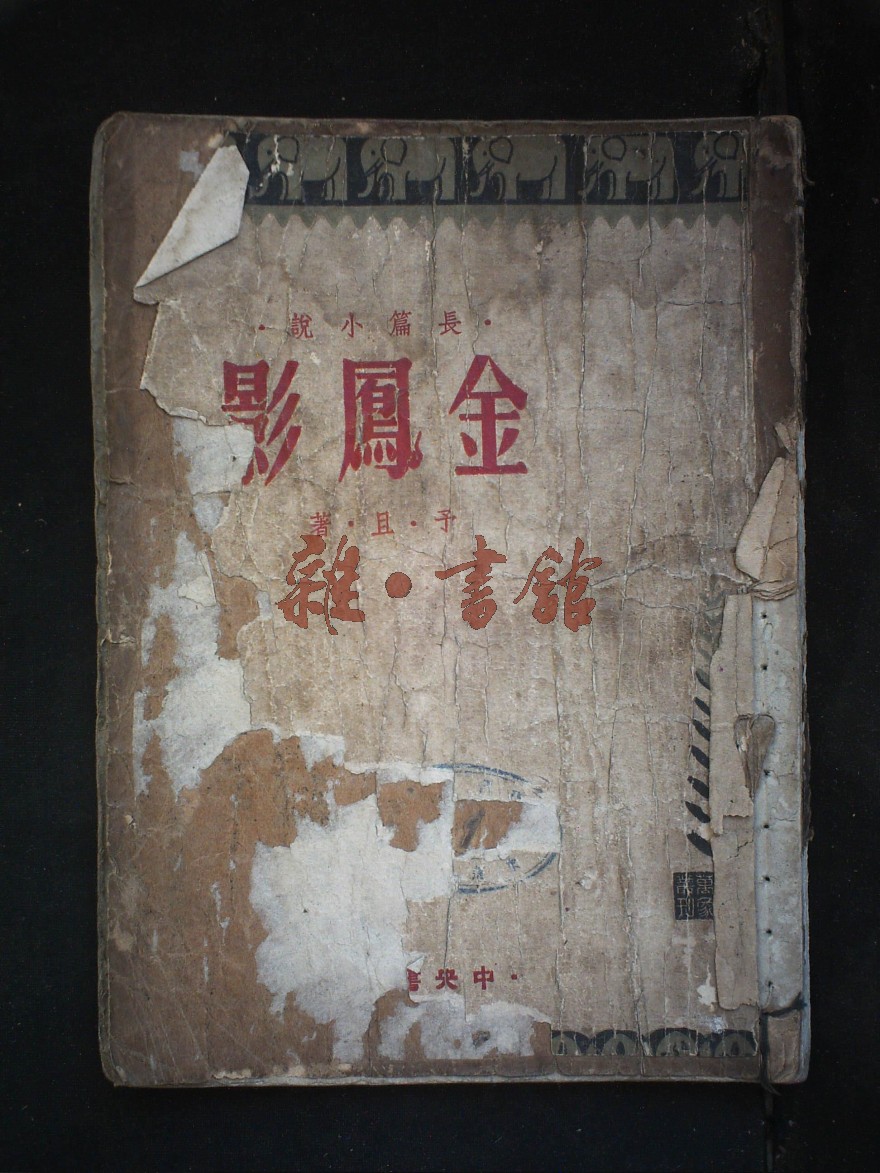 ·長篇小說·
金鳳影
予·且·著
雜·書館
萬象
叢刊
·中央書